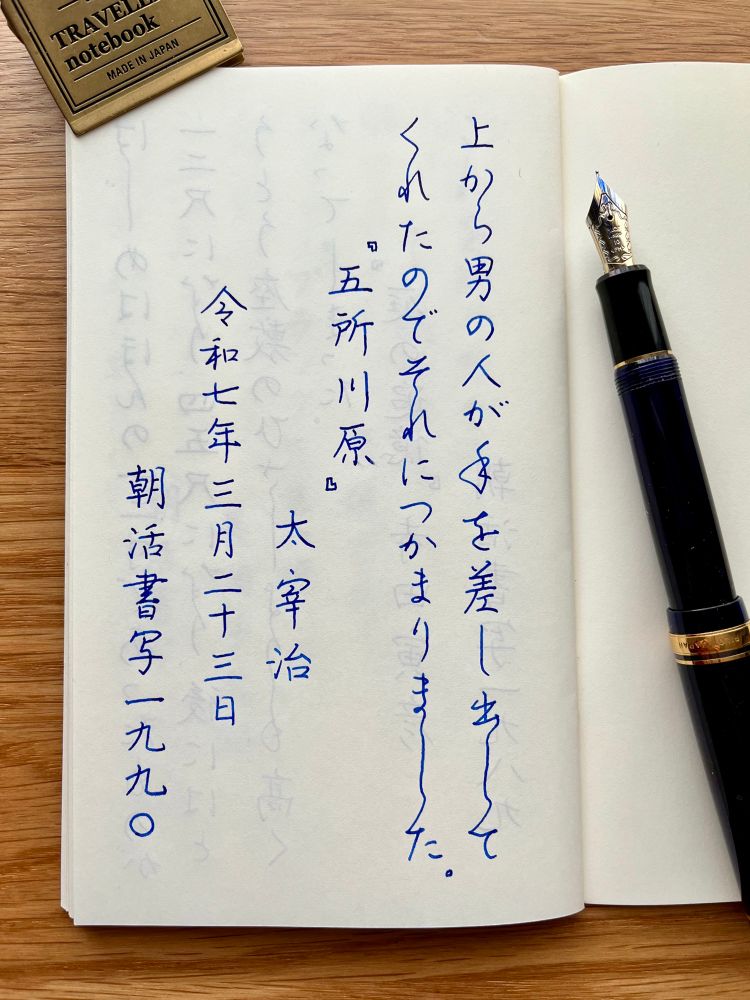 上から男の人が手を差し出して
くれたのでそれにつかまりました。
『五所川原』
太宰治
令和七年三月二十三日
朝活書写一九九〇
TRAVELER
notebook
MADE IN JAPAN